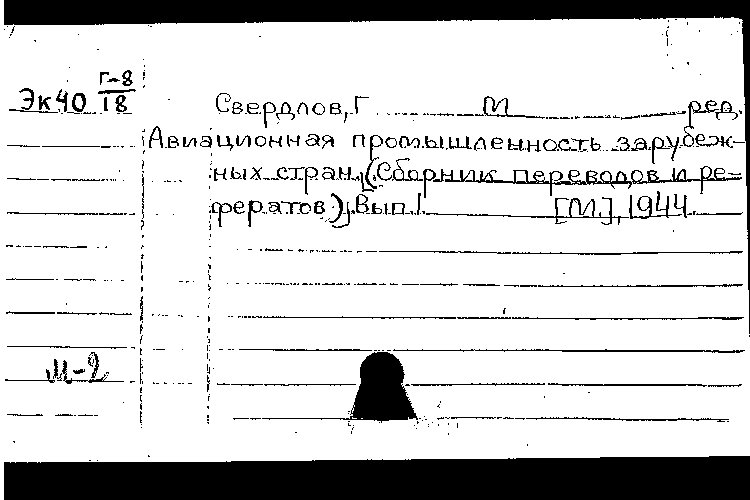 Эк40 Г-8/18
Свердлов, Г М ред.
Авиационная промышленность зарубеж-
ных стран. (Сборник переводов и ре-
фератов). Вып. I. [М.], 1944.
М-2